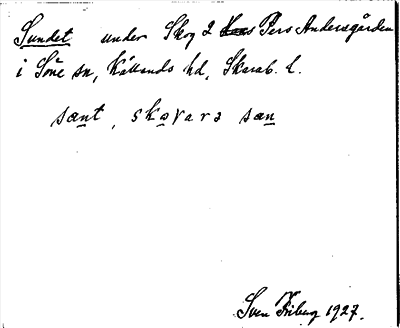 Sundet under Skog 2 Pers Andersgården
i Söne sn, Kållands hd, Skarab. l.
sænt, skovara sæn
Sven Friberg 1927.